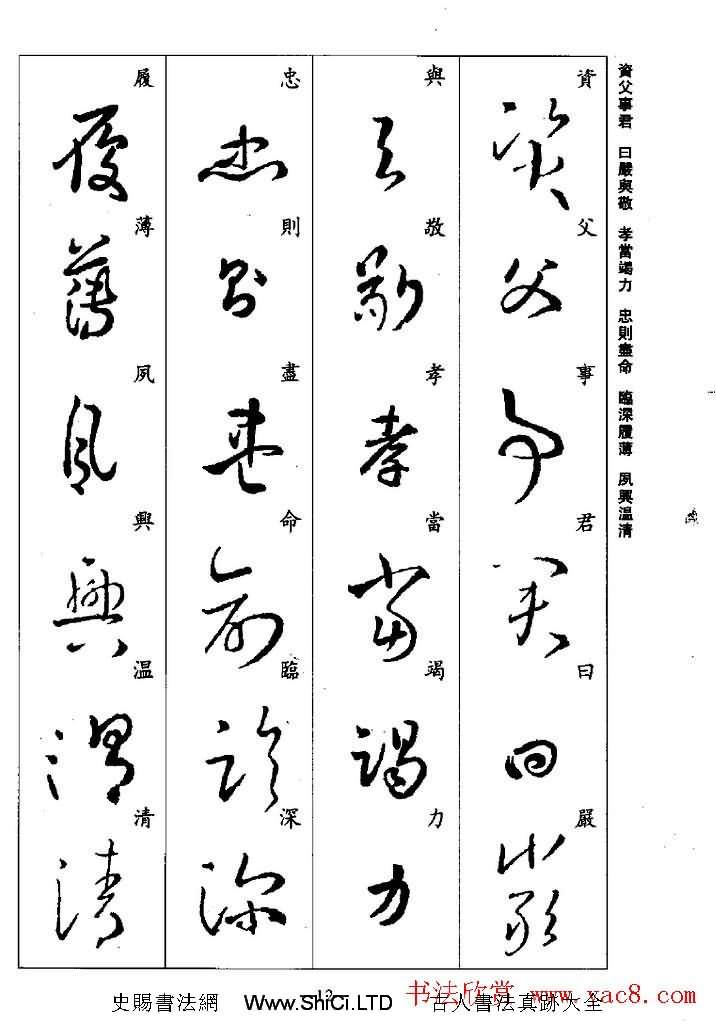 資父事君 曰嚴與敬 孝當竭力 忠則盡命 臨深履薄 夙興温清
資父事君曰嚴
與敬孝當竭力
忠則盡命臨深
履薄夙興温清
12
史賜書法網 Www.ShiCi.LTD 古人書法真跡大全
书法欣赏 www.yac8.com